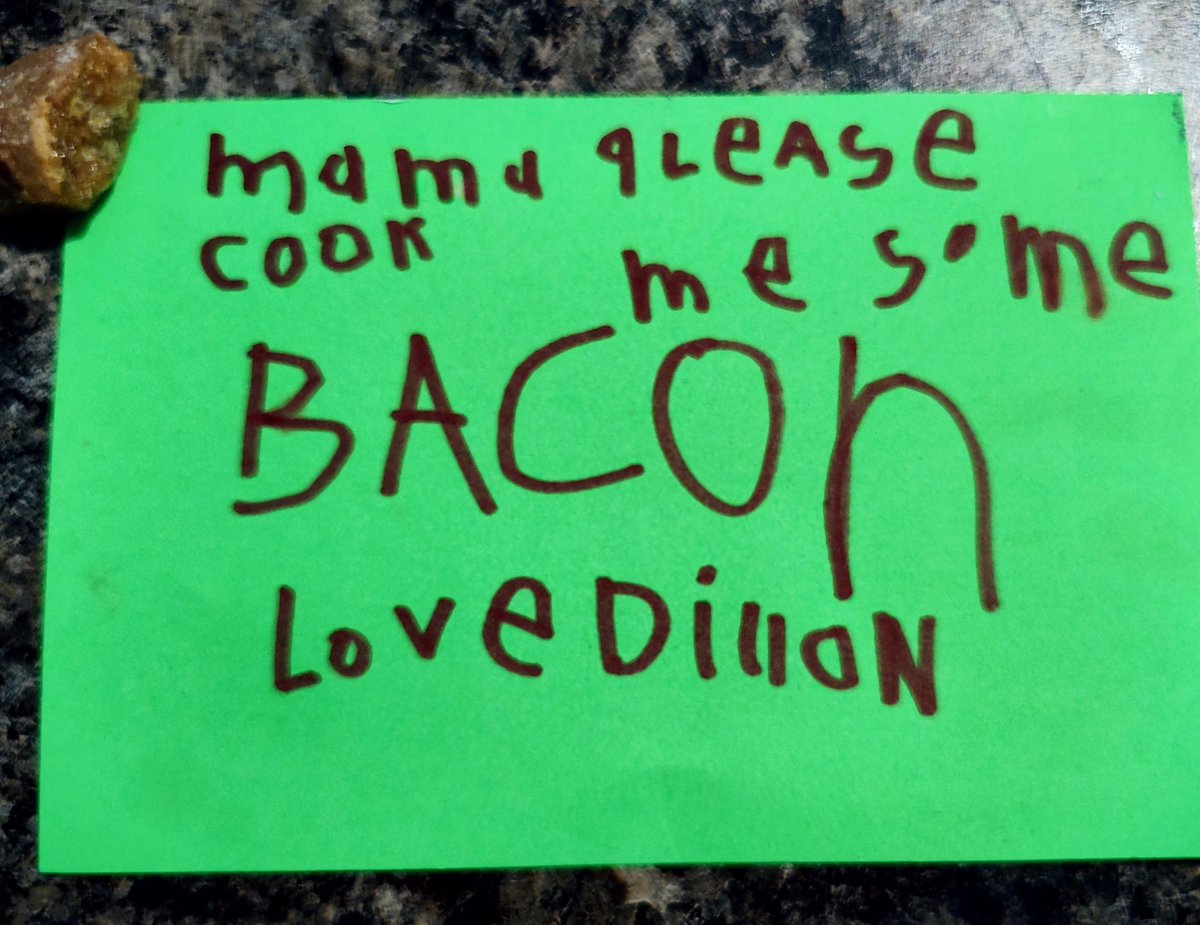 mama pLeASe
cook me some
BACOn
LoveDillon